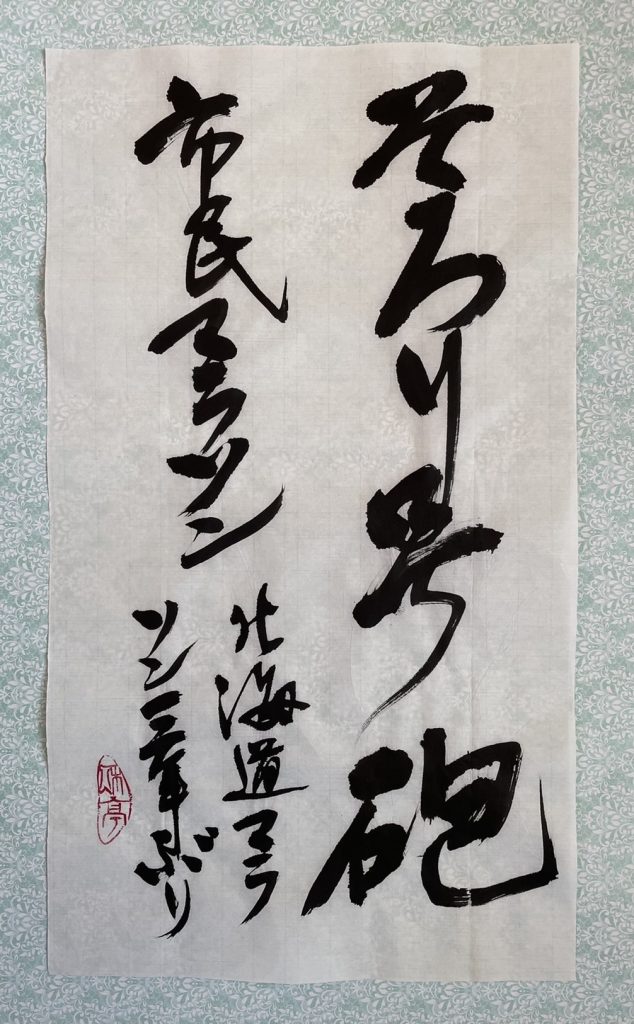 そろり号砲
市民マラソン
北海道マラ
ソン三年ぶり